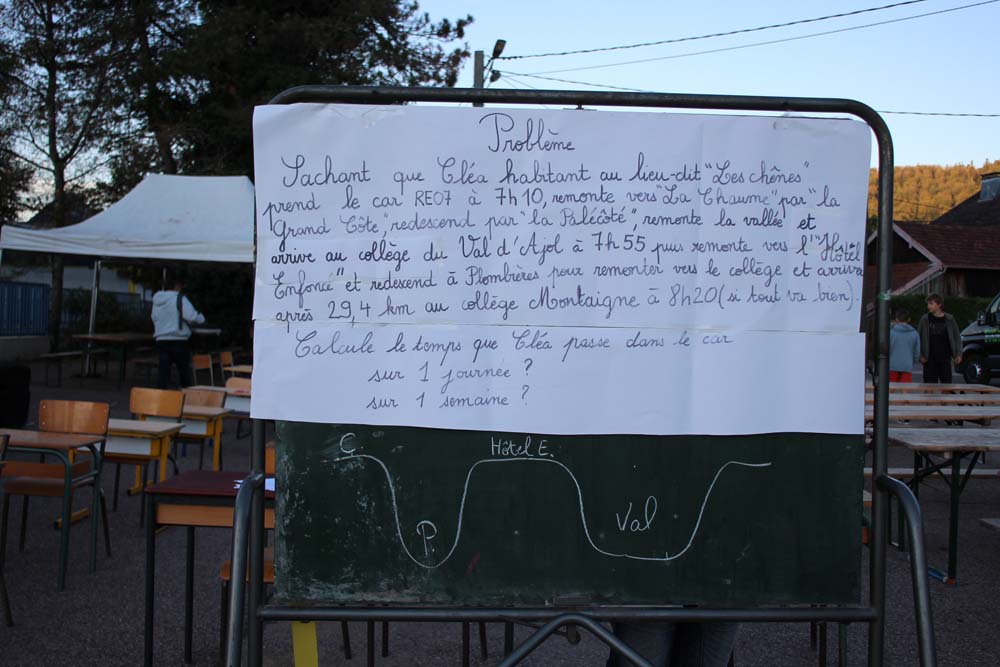 Problème
Sachant que Cléa habitant au lieu-dit "Les chênes"
prend le car RE07 à 7h10, remonte vers "La Chaume" par "la
Grand Côte", redescend par "la Palécôte", remonte la vallée et
arrive au collège du Val d'Ajol à 7h55 puis remonte vers l'"Hôtel
Enfoncé" et redescend à Plombières pour remonter vers le collège et arriva
après 29,4 km au collège Montaigne à 8h20 (si tout va bien).
Calcule le temps que Cléa passe dans le car
sur 1 journée ?
sur 1 semaine ?
C
Hôtel E.
P.
Val